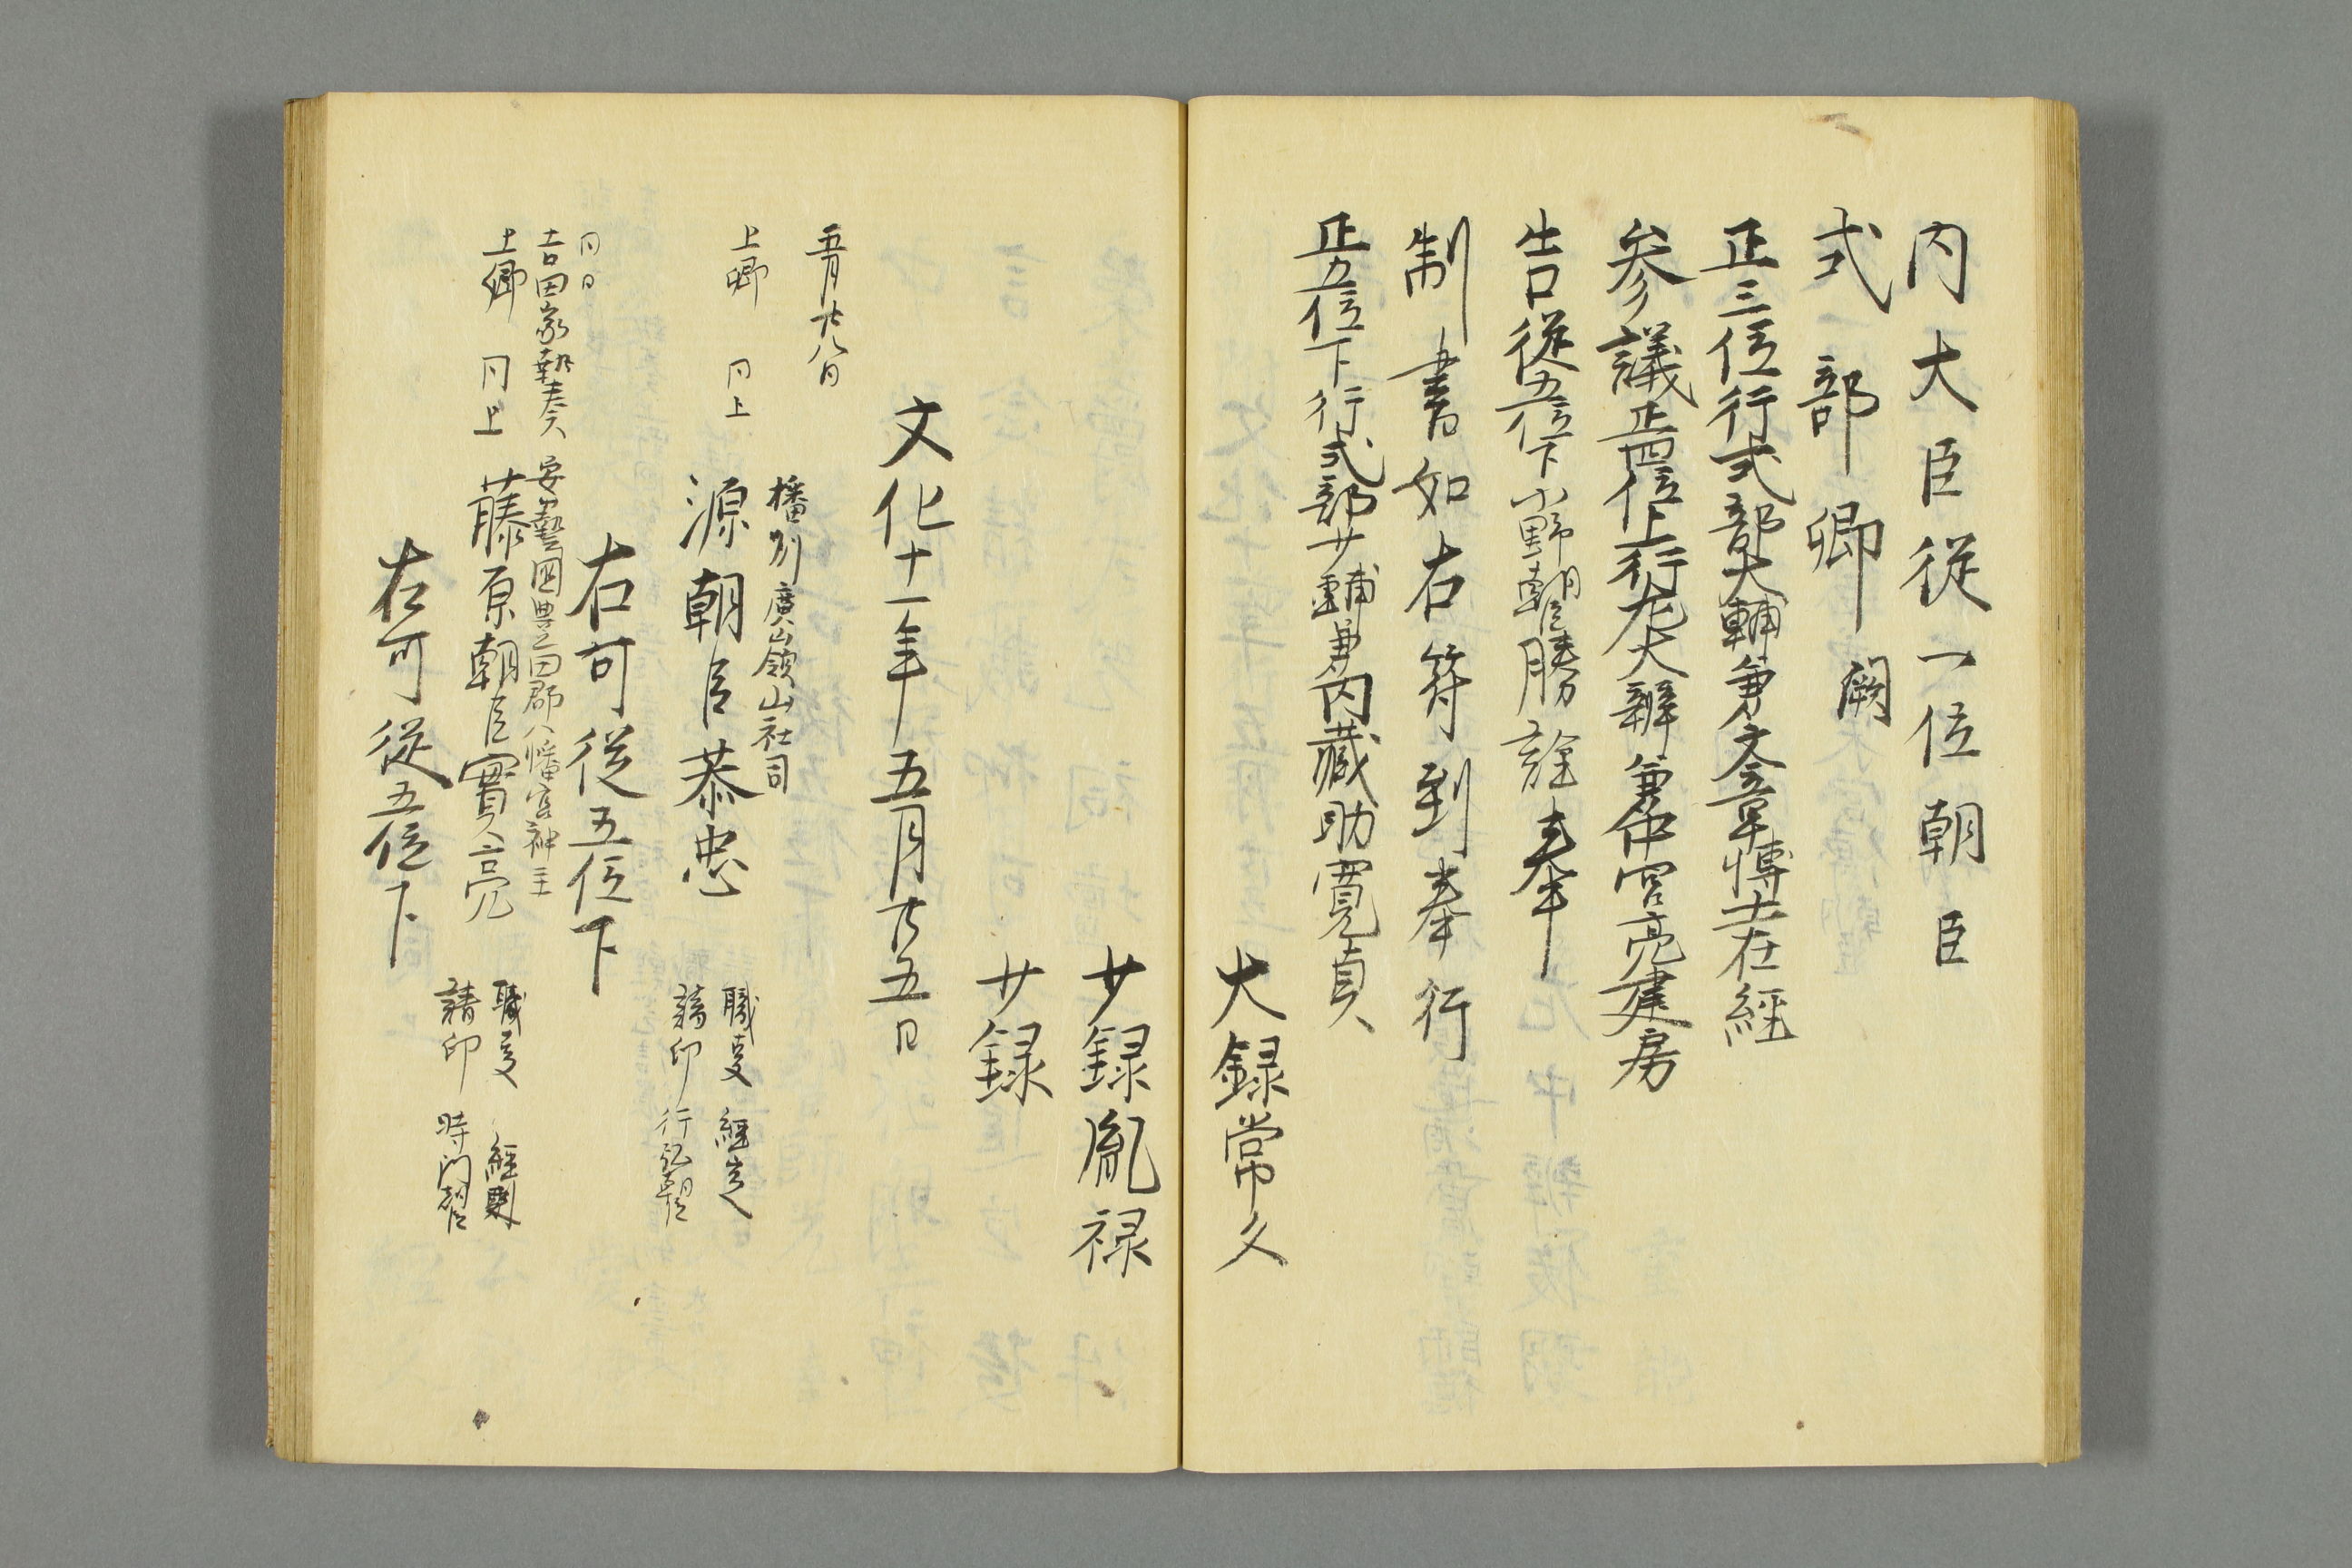 内大臣従一位朝臣
式部卿闕
正三位行式部大輔兼文章博士在經
参議正四位上行左大辨兼中宮亮建房
告従五位下小野朝臣勝詮奉
制書如右符到奉行
正五位下行式部少輔兼内藏助寛貞
大録常久
少録胤禄
少録
文化十一年五月廿五日
五月廿八日
上卿 同上
播刕廣嶺山社司
源朝臣恭忠
職事
請印
右可従五位下
同日
吉田家執奏 安藝國豊田郡八幡宮神主
上卿 同上
藤原朝臣實亮
職事 經則
請印
右可従五位下